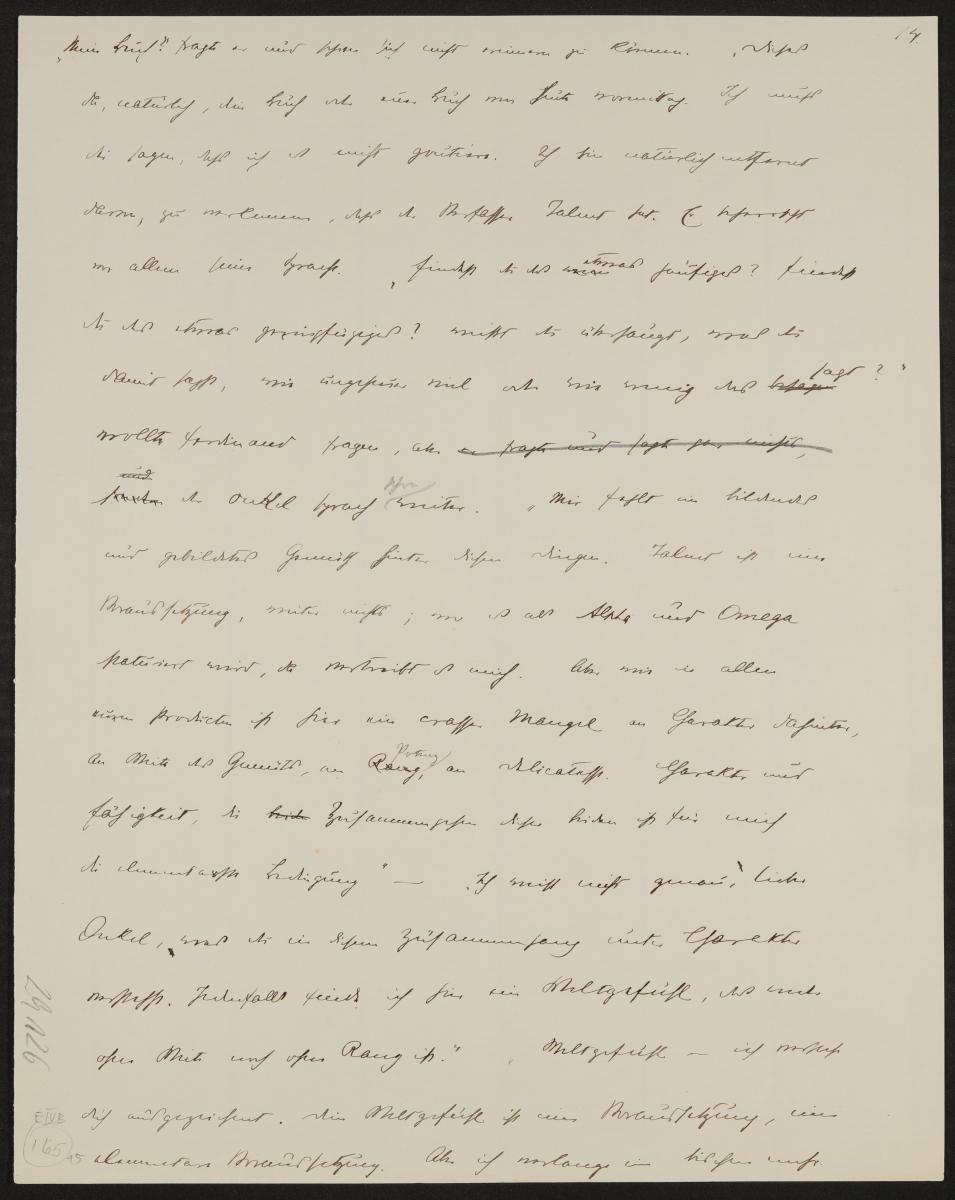 14.
„Mein Buch?" fragte er und schien sich nicht erinnern zu können. „Dieses
da, natürlich, dein Buch oder euer Buch von heute vormittag. Ich muß
dir sagen, daß ich es nicht goutiere. Ich bin natürlich entfernt
davon, zu verkennen, daß der Verfasser Talent hat. Er beherrscht
vor allem seine Sprache. „Findest du das etwas häufiges? Findest
du das etwas geringfügiges? weißt du überhaupt, was du
damit sagst, wie ungeheuer viel oder wie wenig das besagen sagt?"
wollte Ferdinand fragen, aber er fragte und sagte gar nichts,
und der Onkel sprach schon weiter. „Mir fehlt ein bildendes
und gebildetes Gemüth hinter diesen Dingen. Talent ist eine
Voraussetzung, weiter nichts; wo es als Alpha und Omega
statuiert wird, da vertreibt es mich. Aber wie in allen
euren Producten ist hier ein crasser Mangel an Charakter dahinter,
an Weite des Gemüts, an Rang, Potenz an Delicatesse. Charakter und
Fähigkeit, die beiden Zusammengehen dieser beiden ist für mich
die elementarste Bedingung" — „Ich weiß nicht genau, lieber
Onkel, was du in diesem Zusammenhang unter Charakter
verstehst. Jedenfalls finde ich hier ein Weltgefühl, das weder
ohne Weite noch ohne Rang ist." „Weltgefühl — ich verstehe
dich ausgezeichnet. Dein Weltgefühl ist eine Voraussetzung, eine
elementare Voraussetzung. Aber ich verlange ein bischen mehr.
E IVB
165
15